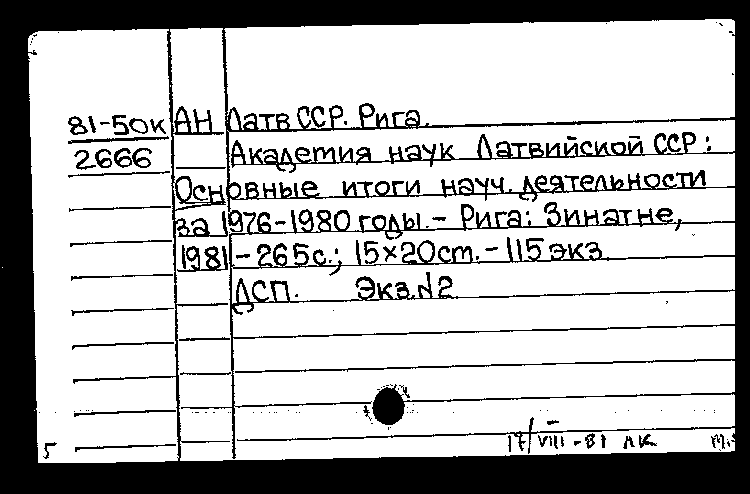 81-50к АН Латв ССР. Рига.
2666 Академия наук Латвийской ССР:
Основные итоги науч. деятельности
за 1976-1980 годы. - Рига: Зинатне,
1981 - 265 с.; 15×20 см. - 115 экз.
ДСП. Экз. №2
5 17/VIII-81 лк